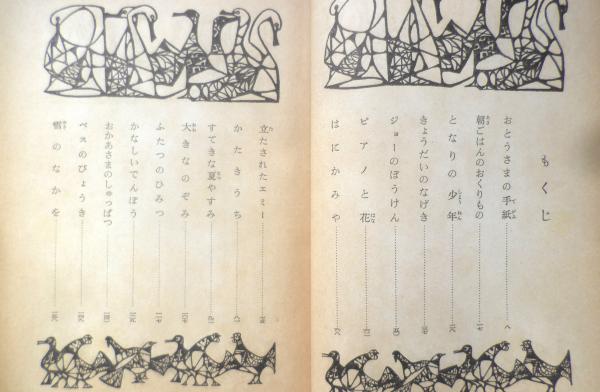 もくじ
おとうさまの手紙
朝ごはんのおくりもの
となりの少年
きょうだいのなげき
ジョーのぼうけん
ピアノと花
はにかみや
立たされたエミー
かたきうち
すてきな夏やすみ
大きなのぞみ
ふたつのひみつ
かなしいでんぽう
おかあさまのしゅっぱつ
ベスのびょうき
雪のなかを